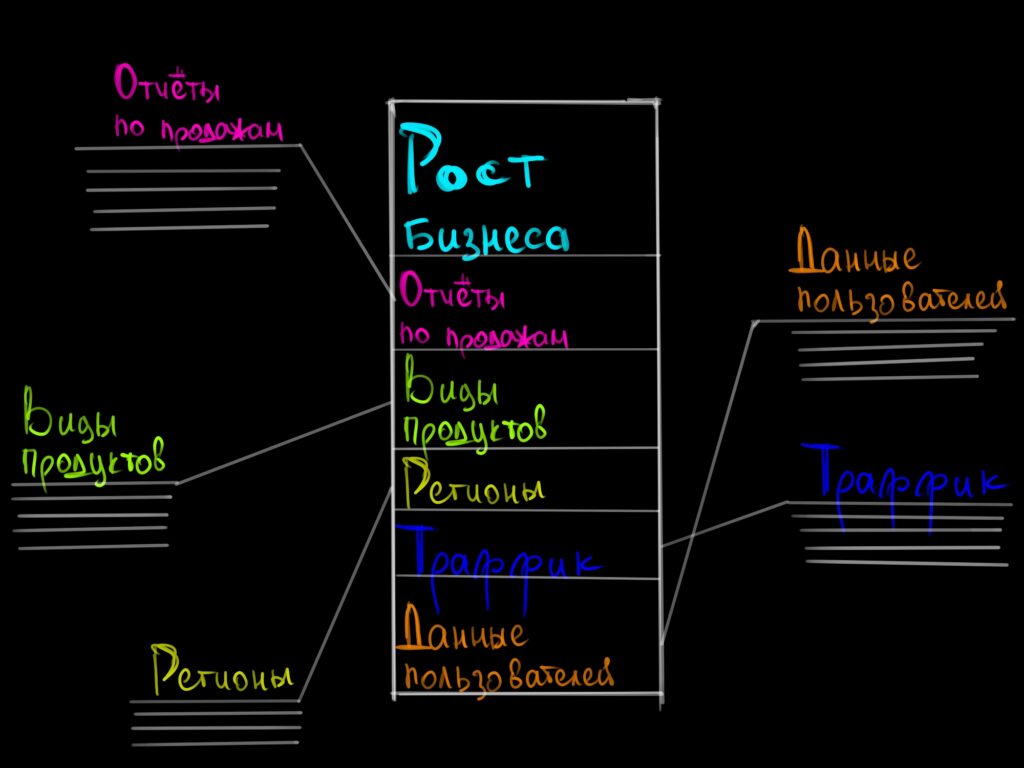 Отчёты
по продажам
Рост
Бизнеса
Отчёты
по продажам
Виды
продуктов
Регионы
Траффик
Данные
пользователей
Виды
продуктов
Регионы
Данные
пользователей
Траффик